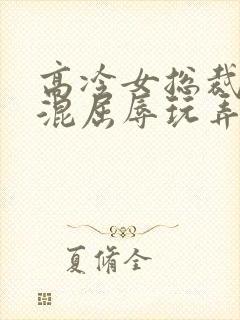 高冷女总裁
混屈辱玩弄
夏脩全